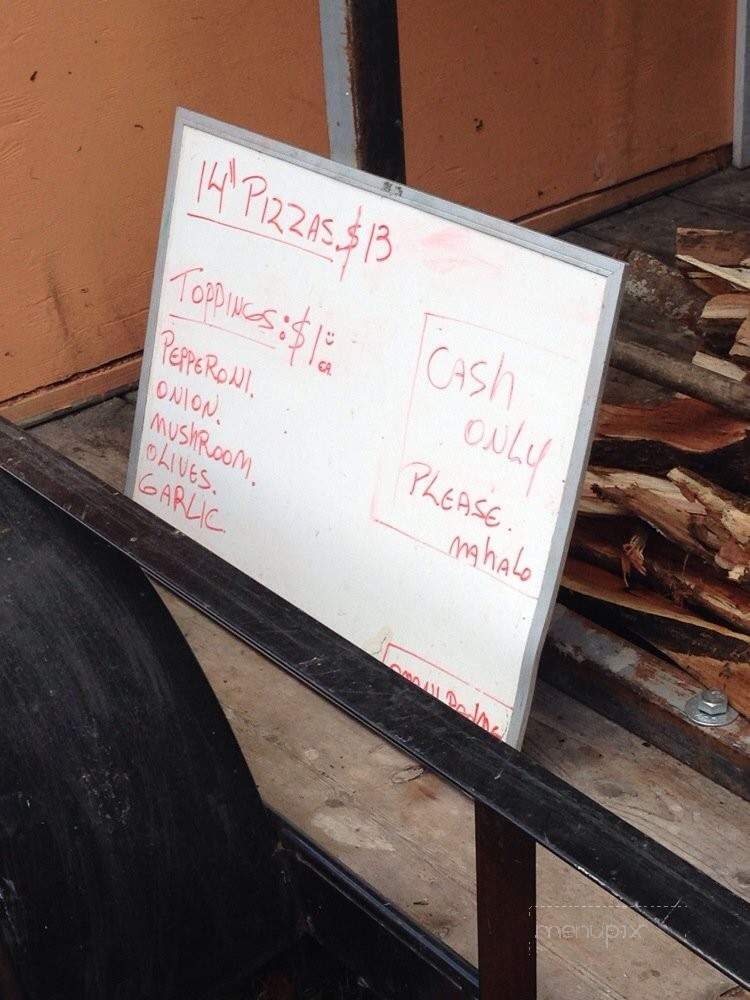 14" PIZZAS $13
TOPPINGS: $1 EA
PEPPERONI.
ONION.
MUSHROOM.
OLIVES.
GARLIC
CASH
ONLY
PLEASE.
MAHALO
menupix